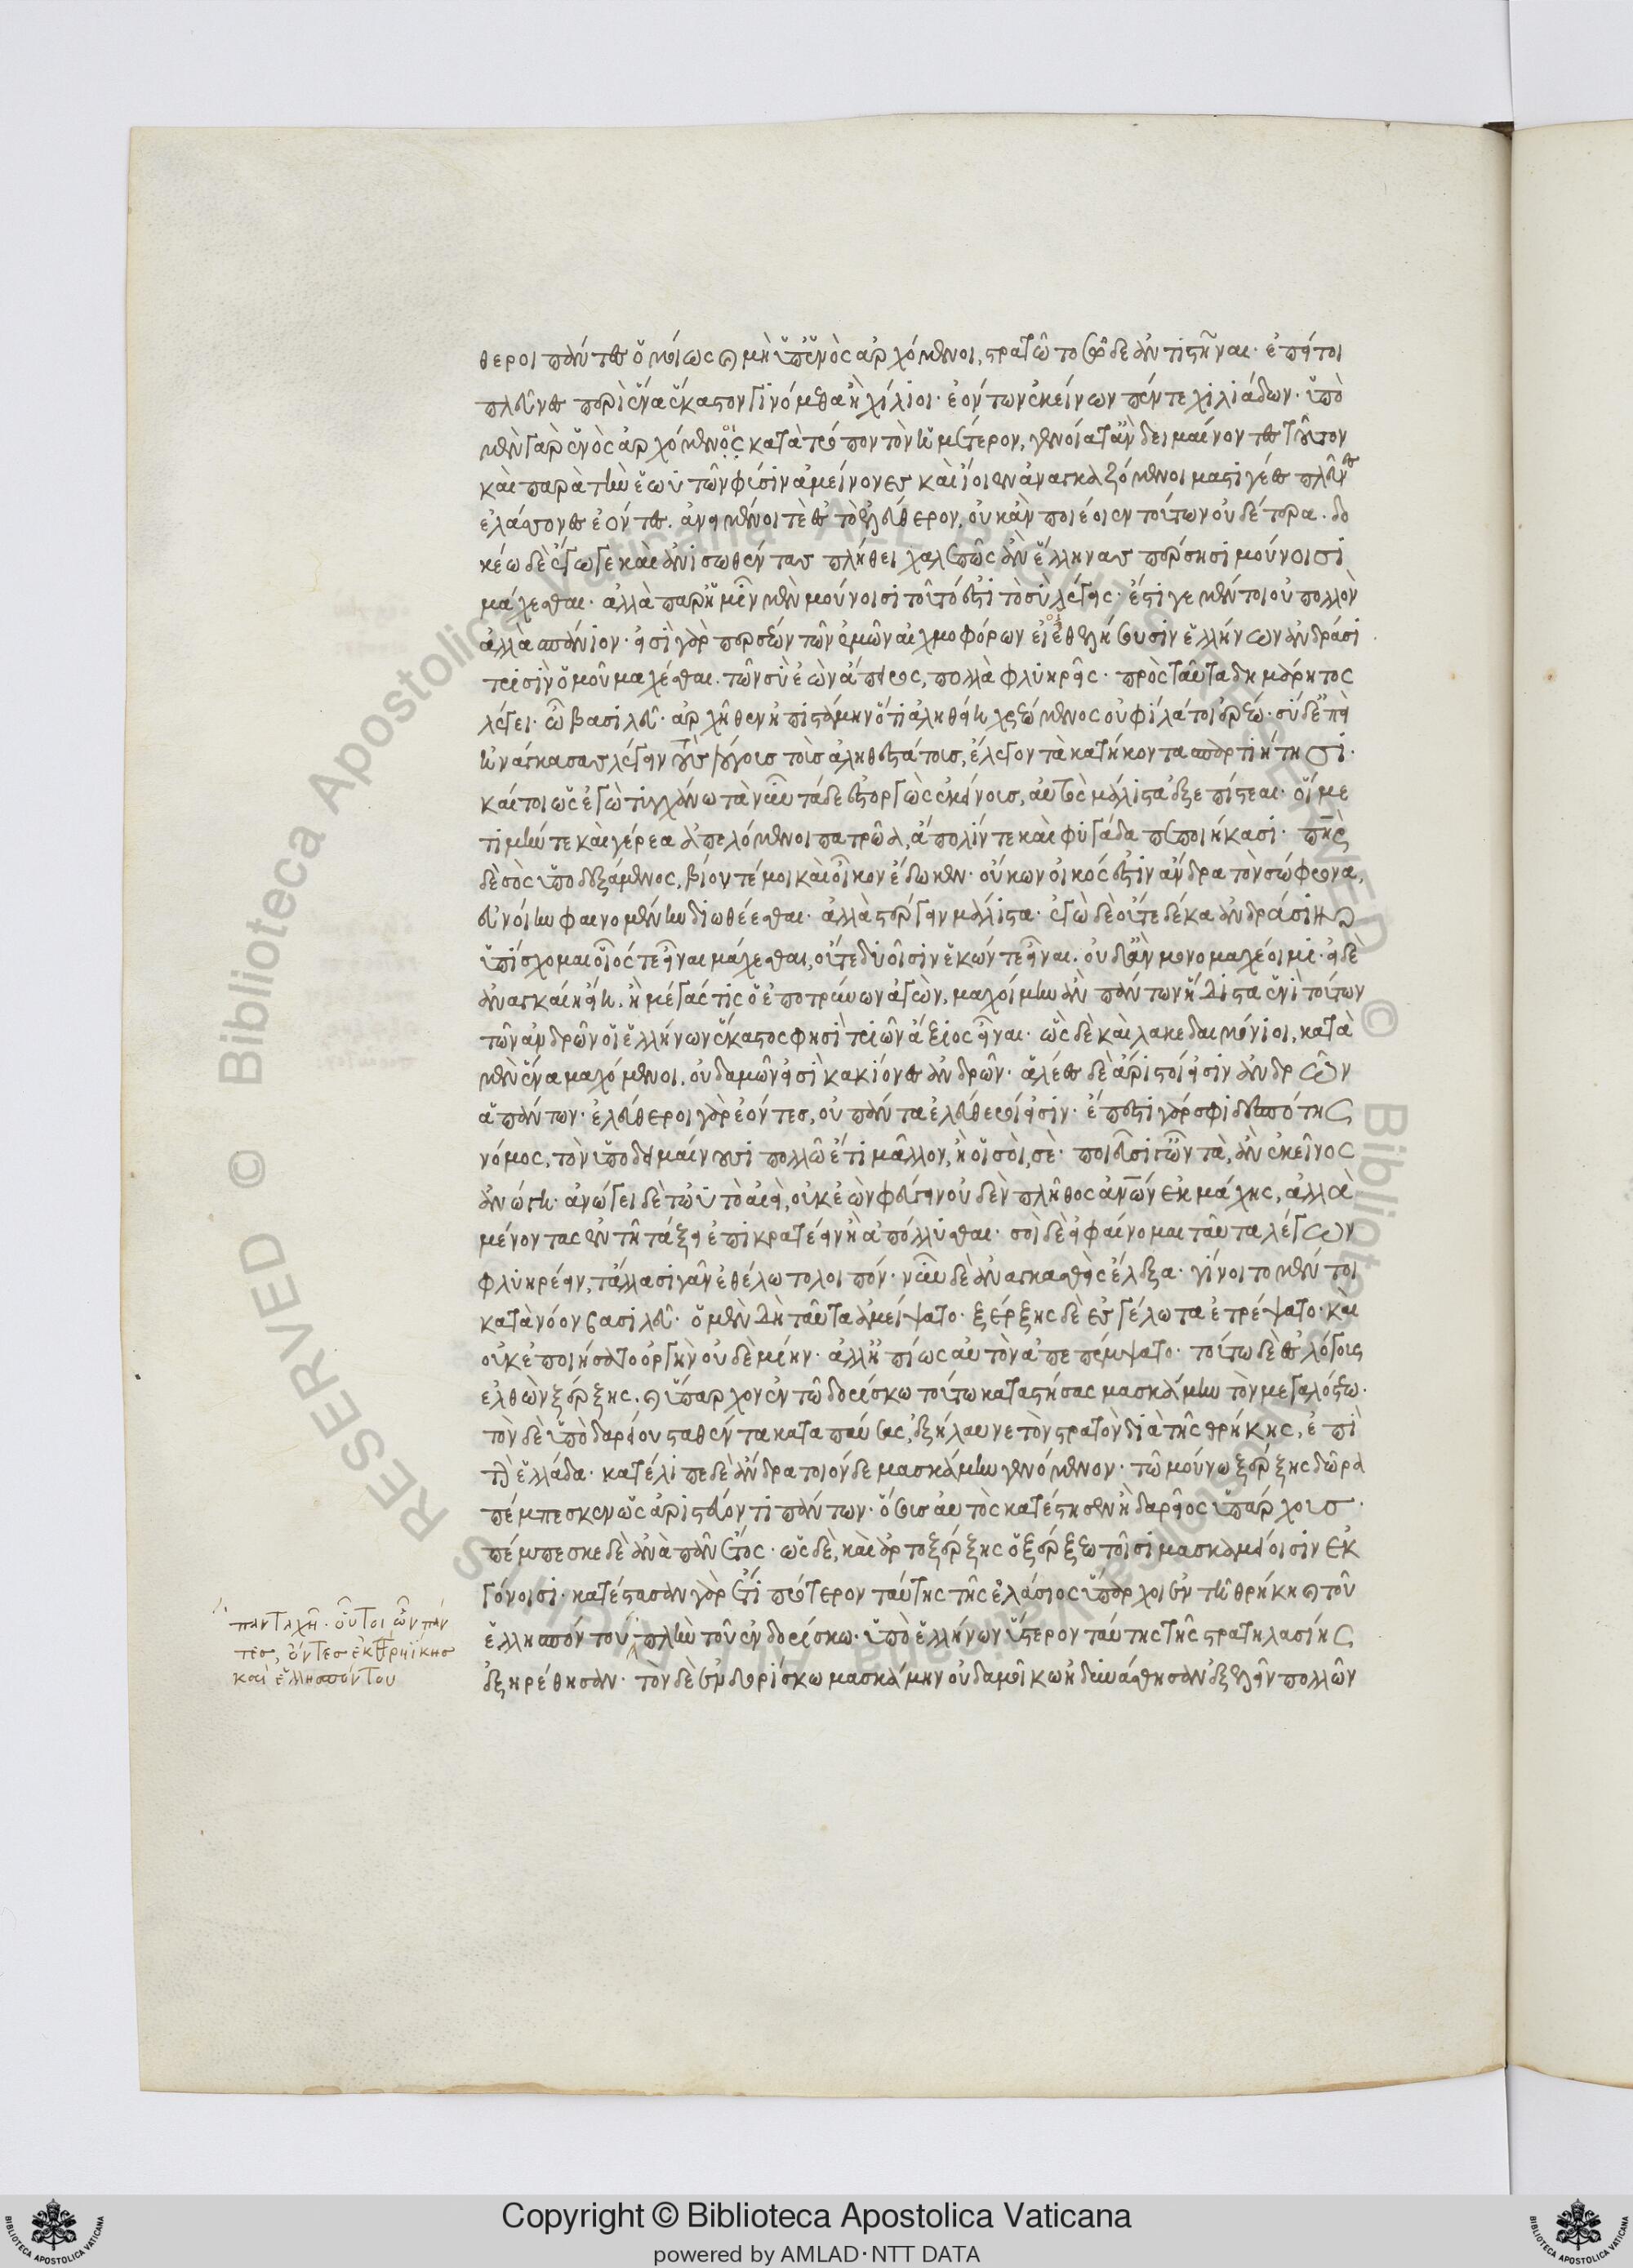 θεροι πάντες ὁμοίως καὶ μὴ ὑπ' ἑνὸς ἀρχόμενοι, στρατῶ τοσῶδε ἀντιστῆναι· ἐπεί τοι
πλεῦνες περὶ ἕνα ἕκαστον γινόμεθα ἢ χίλιοι· ἐόντων ἐκείνων πέντε χιλιάδων· ὑπὸ
μὲν γὰρ ἑνὸς ἀρχόμενος κατὰ τρόπον τὸν ἡμέτερον, γενοίατ' ἂν δειμαίνοντες τοῦτον
καὶ παρὰ τὴν ἑωυτῶν φύσιν ἀμείνονες καὶ ἴοιεν ἀναγκαζόμενοι μάστιγι ἐς πλεῦνας
ἐλάσσονες ἐόντες. ἀνειμένοι τὲ ἐς τὸ ἐλεύθερον, οὐκ ἂν ποιέοιεν τούτων οὐδέτερα. δο
κέω δὲ ἔγωγε καὶ ἀνισωθέντας πλήθει χαλεπῶς ἂν ἕλληνας πέρσησι μούνοισι
μάχεσθαι· ἀλλὰ παρ' ἡμῖν μὲν μούνοισι τοῦτό ἐστι τὸ σὺ λέγεις· ἔστι γε μέντοι οὐ πολλὸν
ἀλλὰ σπάνιον· εἰσὶ γὰρ περσέων τῶν ἐμῶν αἰχμοφόρων οἳ ἐθελήσουσιν ἑλλήνων ἀνδράσι
τρισὶν ὁμοῦ μαχέσθαι. τῶν σὺ ἐὼν ἄπειρος, πολλὰ φλυηρεῖς· πρὸς ταῦτα δημάρητος
λέγει· ὦ βασιλεῦ· ἀρχῆθεν ἠπιστάμην ὅτι ἀληθείη χρεώμενος οὐ φίλά τοι ἐρέω· σὺ δ' ἐπεὶ
ἠνάγκασας λέγειν τῶν λόγων τοὺς ἀληθεστάτους, ἔλεγον τὰ κατήκοντα σπαρτιήτησι·
καίτοι ὡς ἐγὼ τυγχάνω τὰ νῦν τάδε ἐστοργὼς ἐκείνους, αὐτὸς μάλιστα ἐξεπίστεαι· οἵ με
τιμήν τε καὶ γέρεα ἀπελόμενοι πατρῶα, ἄπολίν τε καὶ φυγάδα πεποιήκασι· πατὴρ
δὲ σὸς ὑποδεξάμενος, βίον τέ μοι καὶ οἶκον ἔδωκεν· οὔκων οἰκός ἐστιν ἄνδρα τὸν σώφρονα,
εὐνοίην φαινομένην διωθέεσθαι· ἀλλὰ στέργειν μάλιστα· ἐγὼ δὲ οὔτε δέκα ἀνδράσιν
ὑπίσχομαι οἷός τε εἶναι μάχεσθαι, οὔτε δυοῖσιν ἑκών τε εἶναι. οὐδ' ἂν μουνομαχέοιμι· εἰ δὲ
ἀναγκαίη εἴη. ἢ μέγας τις ὁ ἐποτρύνων ἀγὼν, μαχοίμην ἂν πάντων ἥδιστα ἑνὶ τούτων
τῶν ἀνδρῶν οἳ ἑλλήνων ἕκαστος φησὶ τριῶν ἄξιος εἶναι· ὣς δὲ καὶ λακεδαιμόνιοι, κατὰ
μὲν ἕνα μαχόμενοι. οὐδαμῶν εἰσὶ κακίονες ἀνδρῶν· ἁλέες δὲ ἄριστοί εἰσιν ἀνδρῶν
ἁπάντων· ἐλεύθεροι γὰρ ἐόντες, οὐ πάντα ἐλεύθεροί εἰσιν· ἔπεστι γάρ σφι δεσπότης
νόμος, τὸν ὑποδειμαίνουσι πολλῶ ἔτι μᾶλλον, ἢ οἱ σοὶ, σέ· ποιεῦσι γῶν τὰ, ἂν ἐκεῖνος
ἀνώγη· ἀνώγει δὲ τὠυτὸ αἰεὶ, οὐκ ἐὼν φεύγειν οὐδὲν πλῆθος ἀνθρώπων ἐκ μάχης, ἀλλὰ
μένοντας ἐν τῆ τάξει ἐπικρατέειν ἢ ἀπόλλυσθαι· σοὶ δὲ εἰ φαίνομαι ταῦτα λέγων
φλυηρέειν, τἄλλα σιγᾶν ἐθέλω τολοιπόν· νῦν δὲ ἀναγκασθεὶς ἔλεξα· γίνοιτο μέντοι
κατὰ νόον βασιλεῦ· ὁ μὲν δὴ ταῦτα ἀμείψατο· ξέρξης δὲ ἐς γέλωτα ἐτρέψατο· καὶ
οὐκ ἐποιήσατο ὀργὴν οὐδὲ μίην· ἀλλ' ἠπίως αὐτὸν ἀπεπέμψατο· τούτω δὲ ἐς λόγους
ἐλθὼν ξέρξης. καὶ ὕπαρχον ἐν τῶ δορίσκω τούτω καταστήσας μασκάμην τὸν μεγαλόστω·
τὸν δὲ ὑπὸ δαρείου σταθέντα καταπαύσας, ἐξήλαυνε τὸν στρατὸν διὰ τῆς θρήκης, ἐπὶ
τὴν ἑλλάδα· κατέλιπε δὲ ἄνδρα τοιόνδε μασκάμην γενόμενον· τῶ μούνω ξέρξης δῶρα
πέμπεσκεν ὡς ἀριστεύοντι πάντων· ὅσους αὐτὸς κατέστησεν ἢ δαρεῖος ὑπάρχους·
πέμπεσκε δὲ ἀνὰ πᾶν ἔτος· ὡς δὲ, καὶ ἀρτοξέρξης ὁ ξέρξεω τοῖσι μασκαμείοισιν ἐκ
γόνοισι· κατέστασαν γὰρ ἔτι πρότερον ταύτης τῆς ἐλάσιος ὕπαρχοι ἐν τῆ θρήκη καὶ τοῦ
ἑλλησπόντου πλὴν τοῦ ἐν δορίσκω· ὑπὸ ἑλλήνων ὕστερον ταύτης τῆς στρατηλασίης
ἐξηρέθησαν· τὸν δὲ ἐν δορίσκω μασκάμην οὐδαμοί κω ἠδυνάσθησαν ἐξελεῖν πολλῶν
πανταχῆ· οὗτοι ὦν πάν
τες, ὄντες ἐκ θρηίκης
καὶ ἑλλησπόντου
Copyright © Biblioteca Apostolica Vaticana
powered by AMLAD·NTT DATA